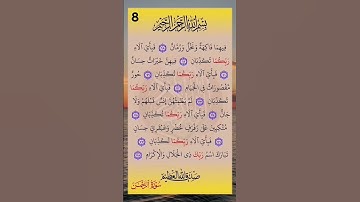 8
بِسْمِ اللَّهِ الرَّحْمَٰنِ الرَّحِيمِ
فِيهِمَا فَاكِهَةٌ وَنَخْلٌ وَرُمَّانٌ فَبِأَيِّ آلَاءِ
رَبِّكُمَا تُكَذِّبَانِ فِيهِنَّ خَيْرَاتٌ حِسَانٌ
فَبِأَيِّ آلَاءِ رَبِّكُمَا تُكَذِّبَانِ حُورٌ
مَقْصُورَاتٌ فِي الْخِيَامِ فَبِأَيِّ آلَاءِ رَبِّكُمَا
تُكَذِّبَانِ لَمْ يَطْمِثْهُنَّ إِنْسٌ قَبْلَهُمْ وَلَا
جَانٌّ فَبِأَيِّ آلَاءِ رَبِّكُمَا تُكَذِّبَانِ
مُتَّكِئِينَ عَلَى رَفْرَفٍ خُضْرٍ وَعَبْقَرِيٍّ حِسَانٍ
فَبِأَيِّ آلَاءِ رَبِّكُمَا تُكَذِّبَانِ
تَبَارَكَ اسْمُ رَبِّكَ ذِي الْجَلَالِ وَالْإِكْرَامِ
صدق الله العظيم
سورة الرحمن